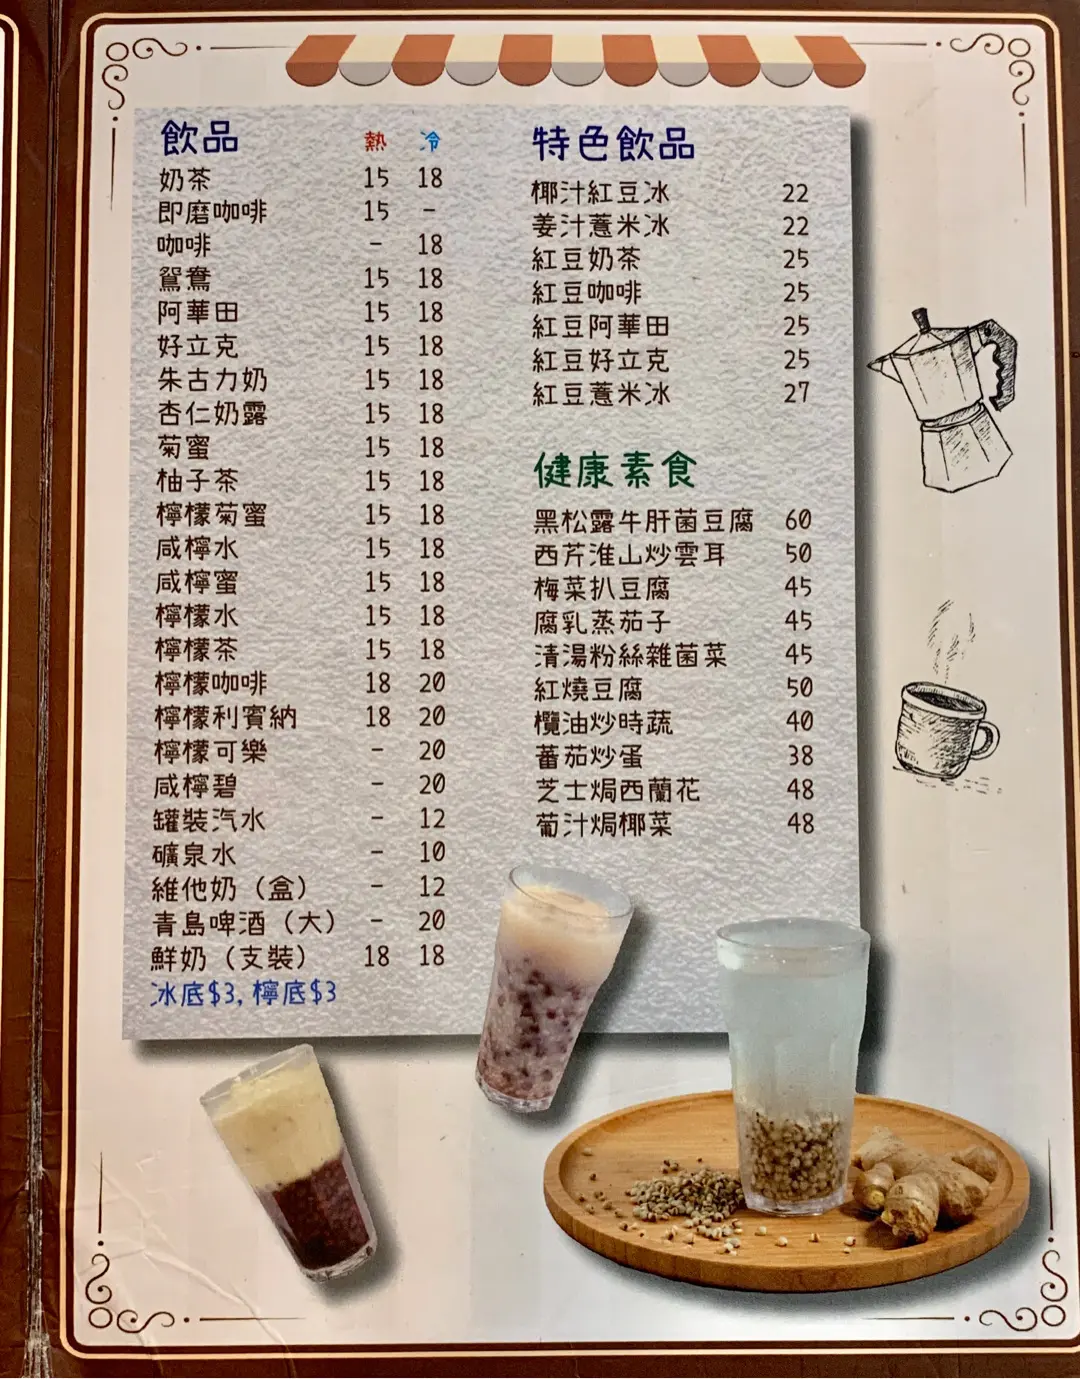 飲品 熱 冷
奶茶 15 18
即磨咖啡 15 -
咖啡 - 18
鴛鴦 15 18
阿華田 15 18
好立克 15 18
朱古力奶 15 18
杏仁奶露 15 18
菊蜜 15 18
柚子茶 15 18
檸檬菊蜜 15 18
咸檸水 15 18
咸檸蜜 15 18
檸檬水 15 18
檸檬茶 15 18
檸檬咖啡 18 20
檸檬利賓納 18 20
檸檬可樂 - 20
咸檸碧 - 20
罐裝汽水 - 12
礦泉水 - 10
維他奶（盒） - 12
青島啤酒（大） - 20
鮮奶（支裝） 18 18
冰底$3, 檸底$3
特色飲品
椰汁紅豆冰 22
姜汁薏米冰 22
紅豆奶茶 25
紅豆咖啡 25
紅豆阿華田 25
紅豆好立克 25
紅豆薏米冰 27
健康素食
黑松露牛肝菌豆腐 60
西芹淮山炒雲耳 50
梅菜扒豆腐 45
腐乳蒸茄子 45
清湯粉絲雜菌菜 45
紅燒豆腐 50
欖油炒時蔬 40
蕃茄炒蛋 38
芝士焗西蘭花 48
葡汁焗椰菜 48